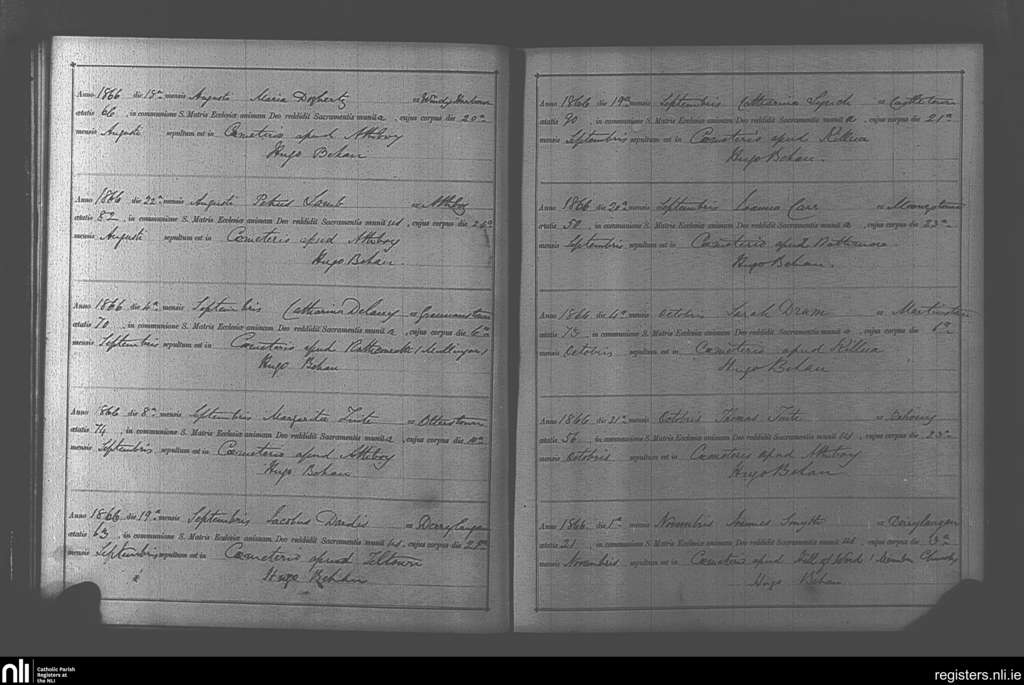 Anno 1866 die 18ᵃ mensis Augusti Maria Dogherty ex Windy Harbour
ætatis 66, in communione S. Matris Ecclesiæ animam Deo reddidit Sacramentis munita, cujus corpus die 20ᵃ
mensis Augusti sepultum est in Cœmeterio apud Athboy
Hugo Behan
Anno 1866 die 22ᵃ mensis Augusti Petrus Lamb ex Athboy
ætatis 82, in communione S. Matris Ecclesiæ animam Deo reddidit Sacramentis munitus, cujus corpus die
mensis Augusti sepultum est in Cœmeterio apud Athboy
Hugo Behan.
Anno 1866 die 4ᵃ mensis Septembris Catharina Delany ex Greenanstown
ætatis 70, in communione S. Matris Ecclesiæ animam Deo reddidit Sacramentis munita, cujus corpus die 6ᵃ
mensis Septembris sepultum est in Cœmeterio apud
Hugo Behan
Anno 1866 die 8ᵃ mensis Septembris Margarita Tuite ex Otterstown
ætatis 74, in communione S. Matris Ecclesiæ animam Deo reddidit Sacramentis munita, cujus corpus die 10ᵃ
mensis Septembris sepultum est in Cœmeterio apud Athboy
Hugo Behan
Anno 1866 die 19ᵃ mensis Septembris Jacobus Dardis ex Derrylangan
ætatis 63, in communione S. Matris Ecclesiæ animam Deo reddidit Sacramentis munitus, cujus corpus die
mensis Septembris sepultum est in Cœmeterio apud Teltown
Hugo Behan
Anno 1866 die 19ᵃ mensis Septembris Catharina Lynch ex Castletown
ætatis 90, in communione S. Matris Ecclesiæ animam Deo reddidit Sacramentis munita, cujus corpus die 21ᵃ
mensis Septembris sepultum est in Cœmeterio apud Killua
Hugo Behan.
Anno 1866 die 20ᵃ mensis Septembris Carr ex
ætatis 50, in communione S. Matris Ecclesiæ animam Deo reddidit Sacramentis munita, cujus corpus die 23ᵃ
mensis Septembris sepultum est in Cœmeterio apud
Hugo Behan.
Anno 1866 die 4ᵃ mensis Octobris Sarah Dram ex Martinstown
ætatis 73, in communione S. Matris Ecclesiæ animam Deo reddidit Sacramentis munita, cujus corpus die 6ᵃ
mensis Octobris sepultum est in Cœmeterio apud Killua
Hugo Behan
Anno 1866 die 21ᵃ mensis Octobris Thomas Tuite ex
ætatis 56, in communione S. Matris Ecclesiæ animam Deo reddidit Sacramentis munitus, cujus corpus die 23ᵃ
mensis Octobris sepultum est in Cœmeterio apud Athboy
Hugo Behan
Anno 1866 die 1ᵃ mensis Novembris Joannes Smyth ex Derrylangan
ætatis 21, in communione S. Matris Ecclesiæ animam Deo reddidit Sacramentis munitus, cujus corpus die
mensis Novembris sepultum est in Cœmeterio apud Hill of Ward
Hugo Behan
nli
Catholic Parish
Registers at
the NLI
registers.nli.ie